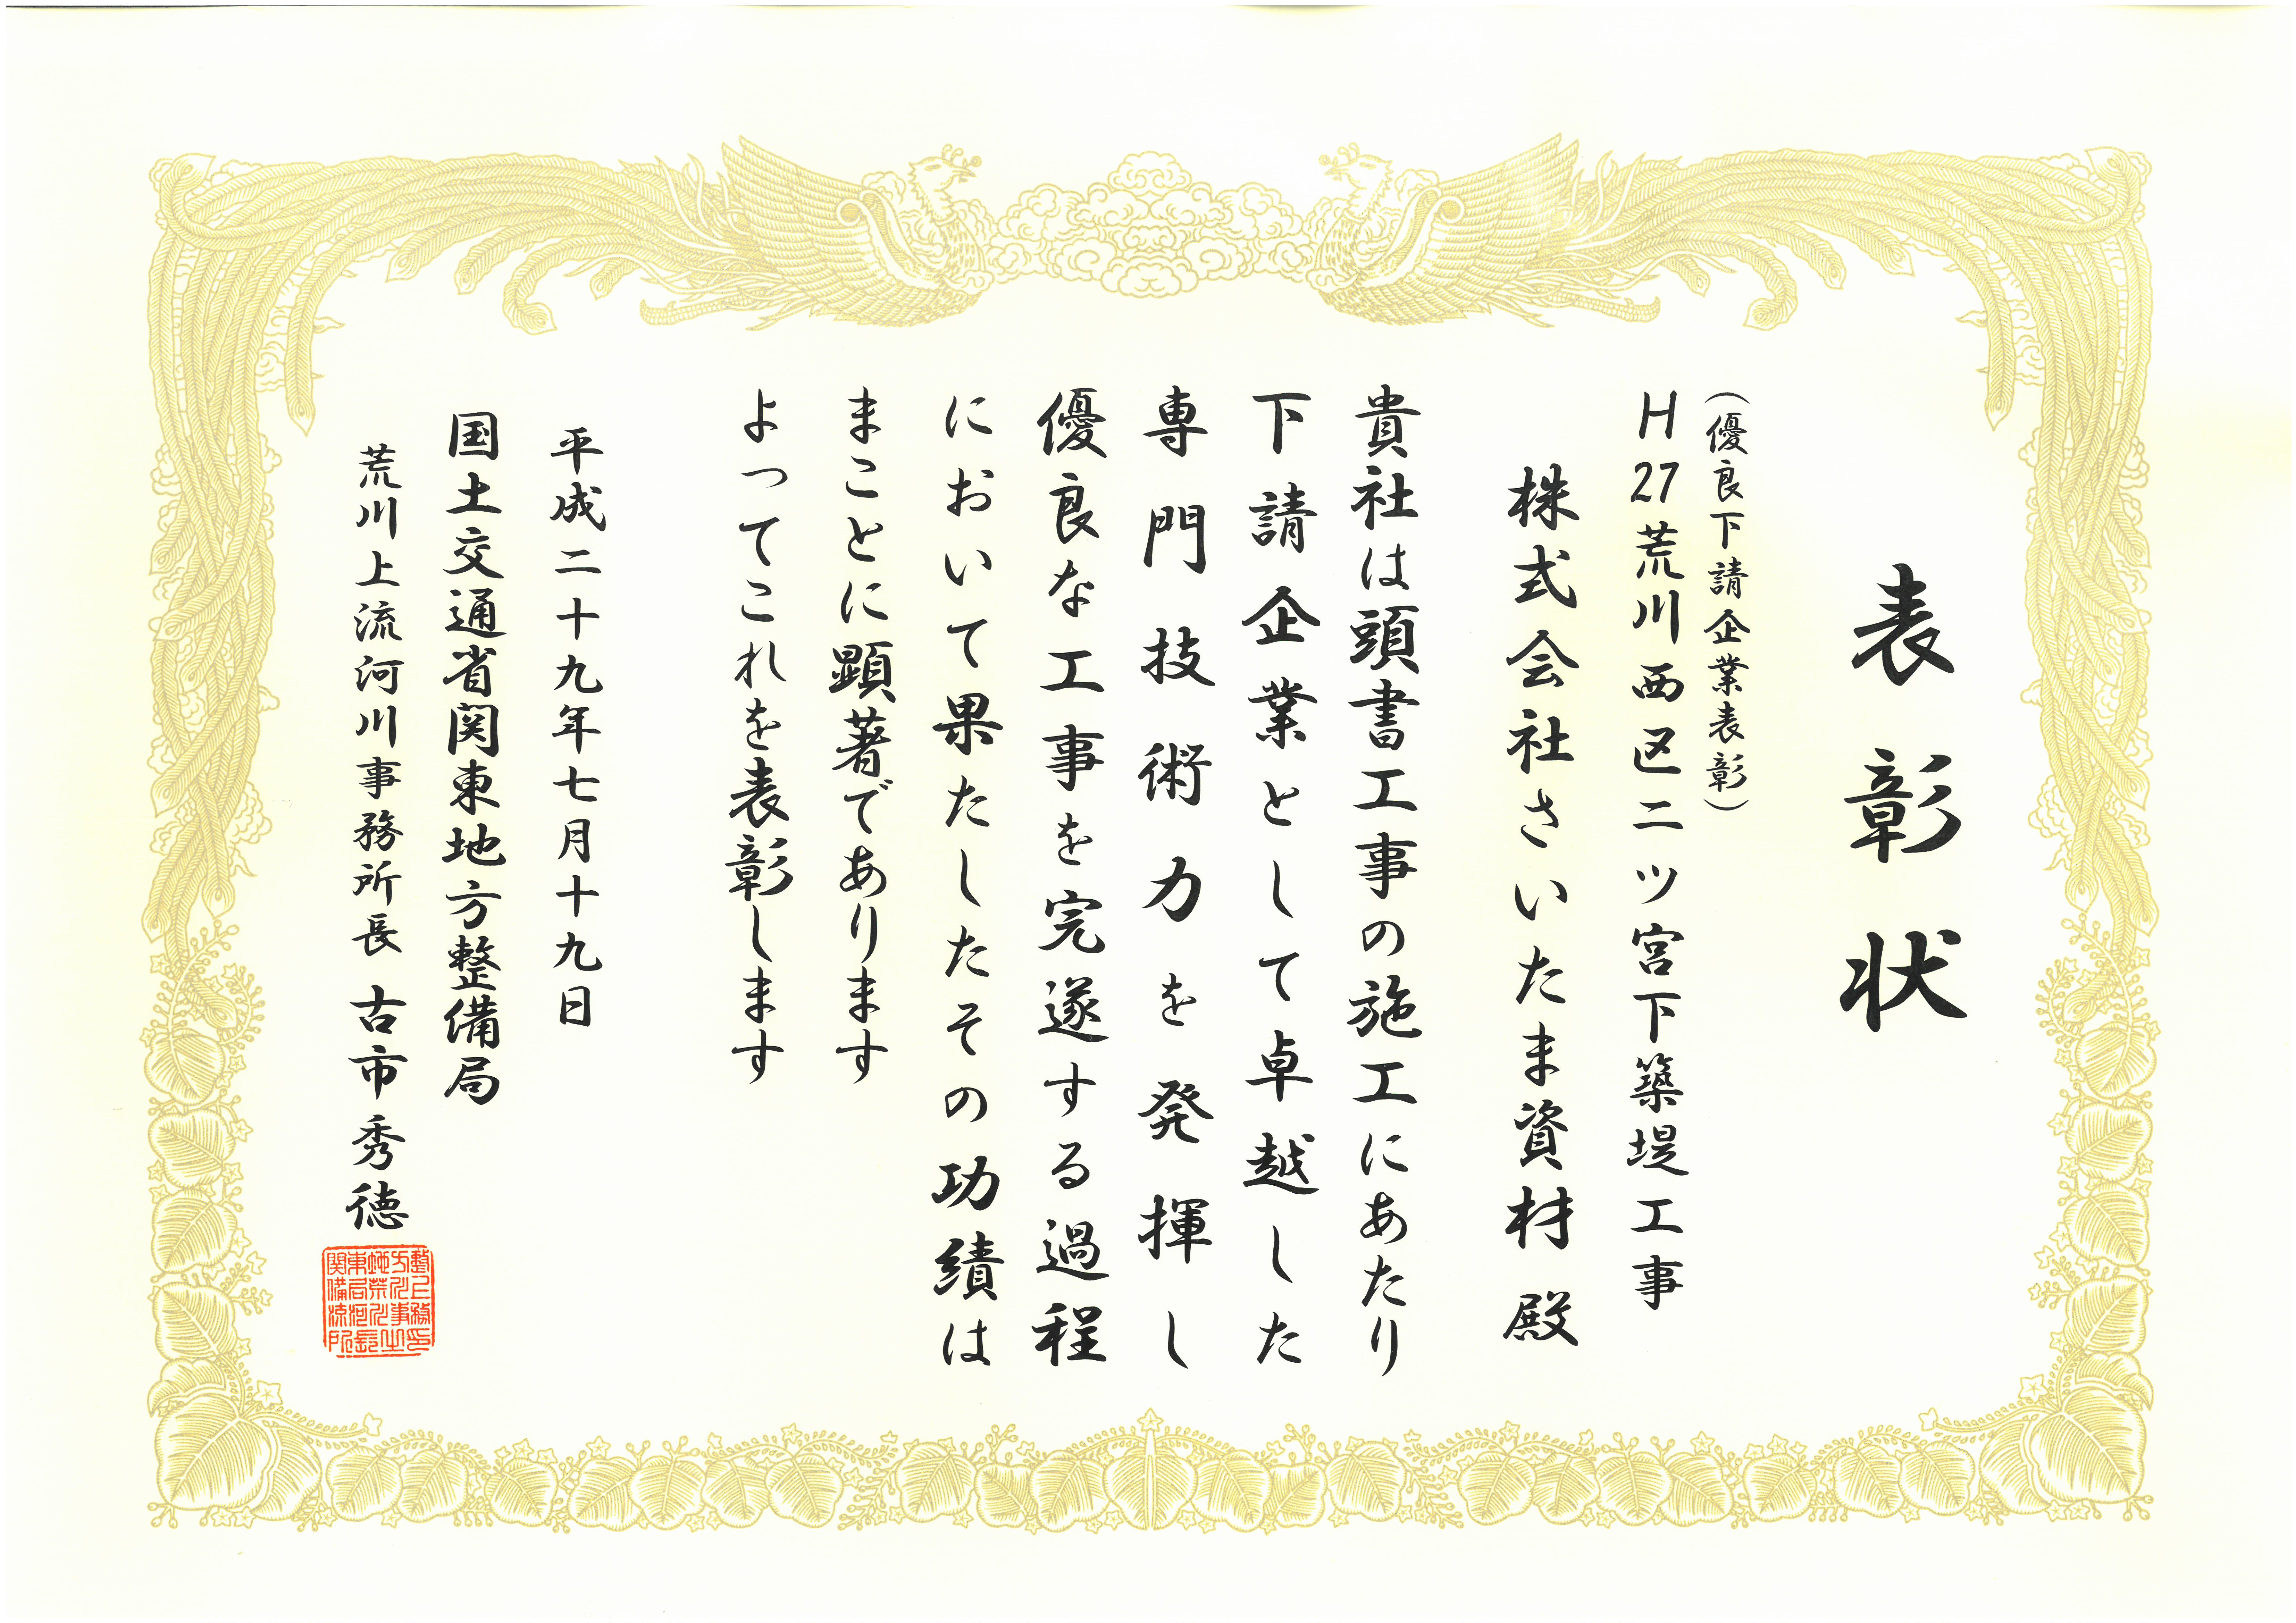 表彰状
（優良下請企業表彰）
H27荒川西区二ツ宮下築堤工事
株式会社さいたま資材 殿
貴社は頭書工事の施工にあたり
下請企業として卓越した
専門技術力を発揮し
優良な工事を完遂する過程
において果たしたその功績は
まことに顕著であります
よってこれを表彰します
平成二十九年七月十九日
国土交通省関東地方整備局
荒川上流河川事務所長 古市秀徳